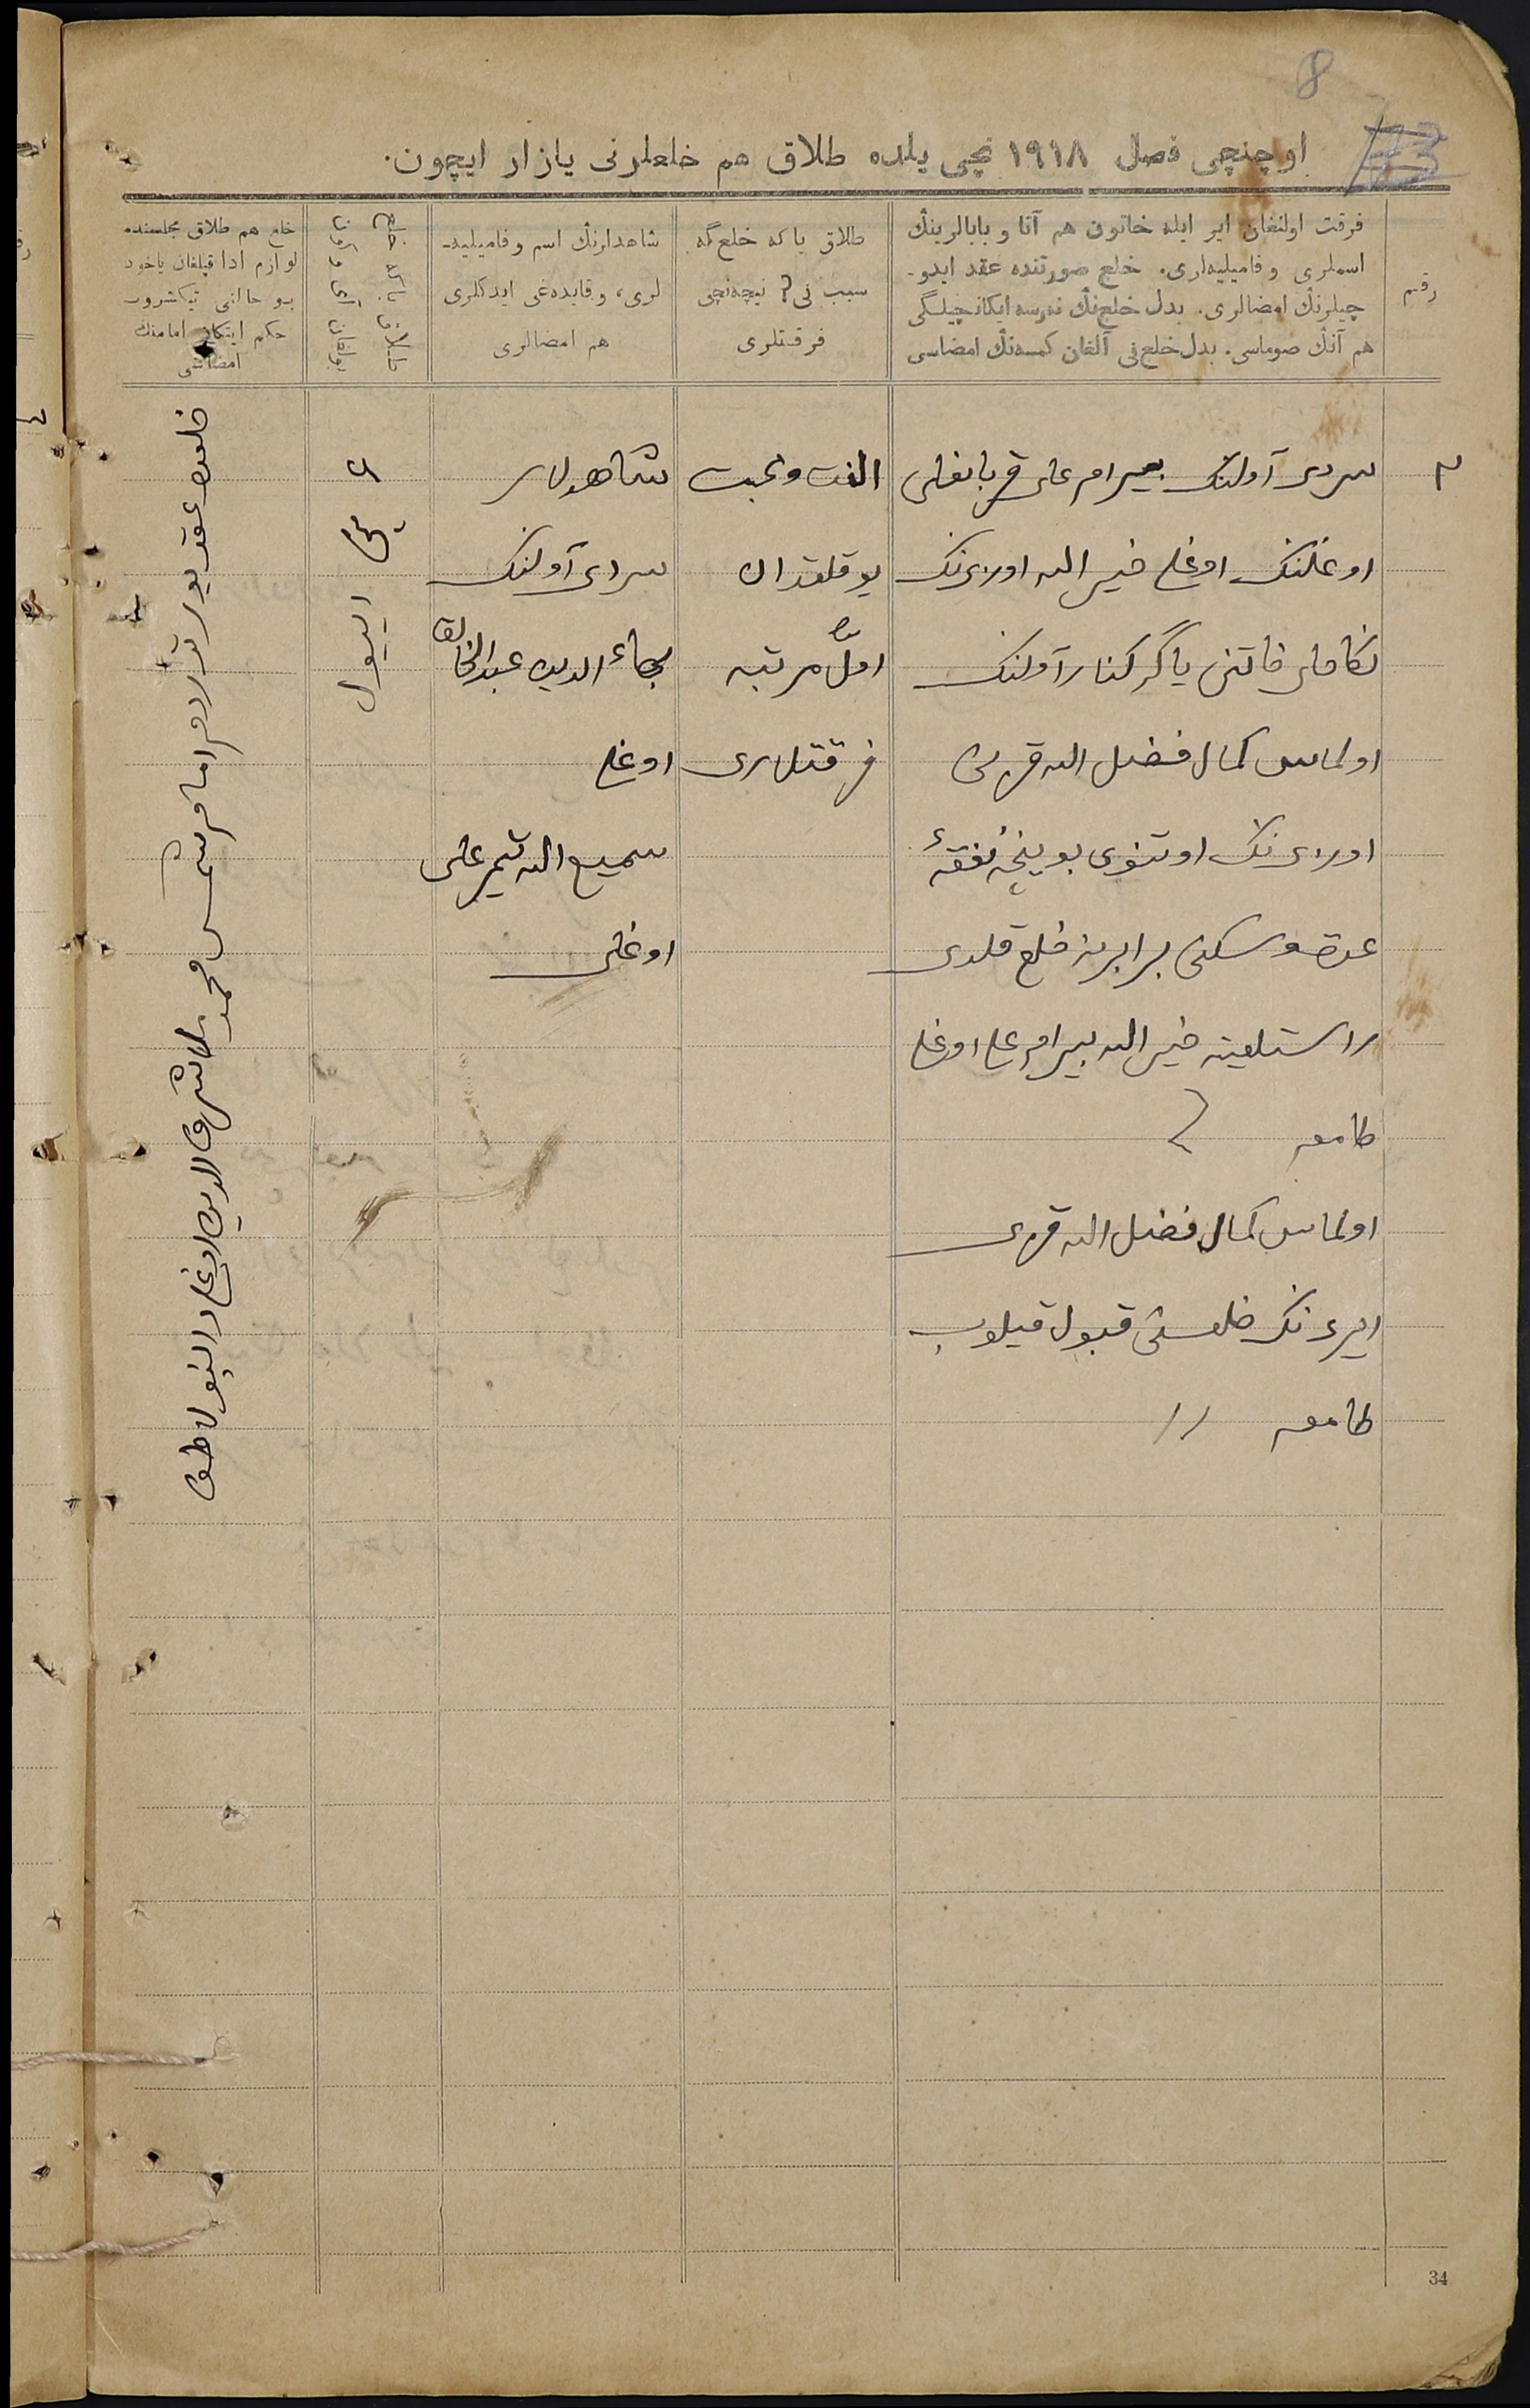 8
33
اوچنچی فصل ۱۹۱۸ نچی یلده طلاق هم خلعلرنی یازار ایچون.
رقم
فرقت اولنغان ایر ایله خاتون هم آنا و بابالرینڭ
اسملری و فامیلیه‌لری. خلع صورتنده عقد ایدو-
چیلرنڭ امضالری. بدل خلع‌نڭ نه‌رسه ایکانچیلگی
هم آنڭ صوماسی. بدل خلع‌نی آلغان کمسه‌نڭ امضاسی
طلاق یا که خلع گه
سبب نی؟ نیچه‌نچی
فرقتلری
شاهدلرنڭ اسم و فامیلیه-
لری، و قایده‌غی ایدکلری
هم امضالری
خلع هم طلاق مجلسنده
لوازم ادا قیلغان یاخود
بو حالنی تیکشروب
حکم ایتکان امامنڭ
امضاسی
۲
آولنڭ بیرام علی قربانعلی
اوغلنڭ اوغلی خیر الله اوزی‌نڭ
نکاحلی خاتنی آولنڭ
اولماس کمال فضل الله قزی
اوزی‌نڭ اوتنوی بوینچه نفقهٔ
عدت و سکنی برابرینه خلع قلدی
راستلغینه خیر الله بیرام علی اوغلی
طامعه
اولماس کمال فضل الله قزی
ایری‌نڭ خلعسنی قبول قیلوب
طامعه //
الفت و محبت
یوقلقدان
اول مرتبه
فرقتلری
شاهدلار
آولنڭ
بهاء الدین عبد الخالق
اوغلی
سمیع الله علی
اوغلی
۶
نچی
اییول
امام شمس محمد ملا شرف الدین اوغلی
34